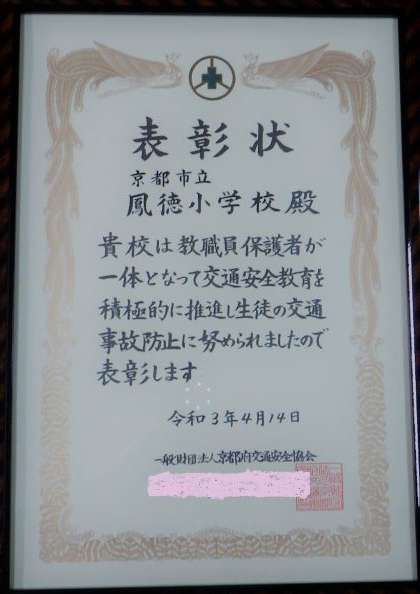 表彰状
京都市立
鳳徳小学校殿
貴校は教職員保護者が
一体となって交通安全教育を
積極的に推進し生徒の交通
事故防止に努められましたので
表彰します
令和3年4月14日
一般財団法人京都府交通安全協会